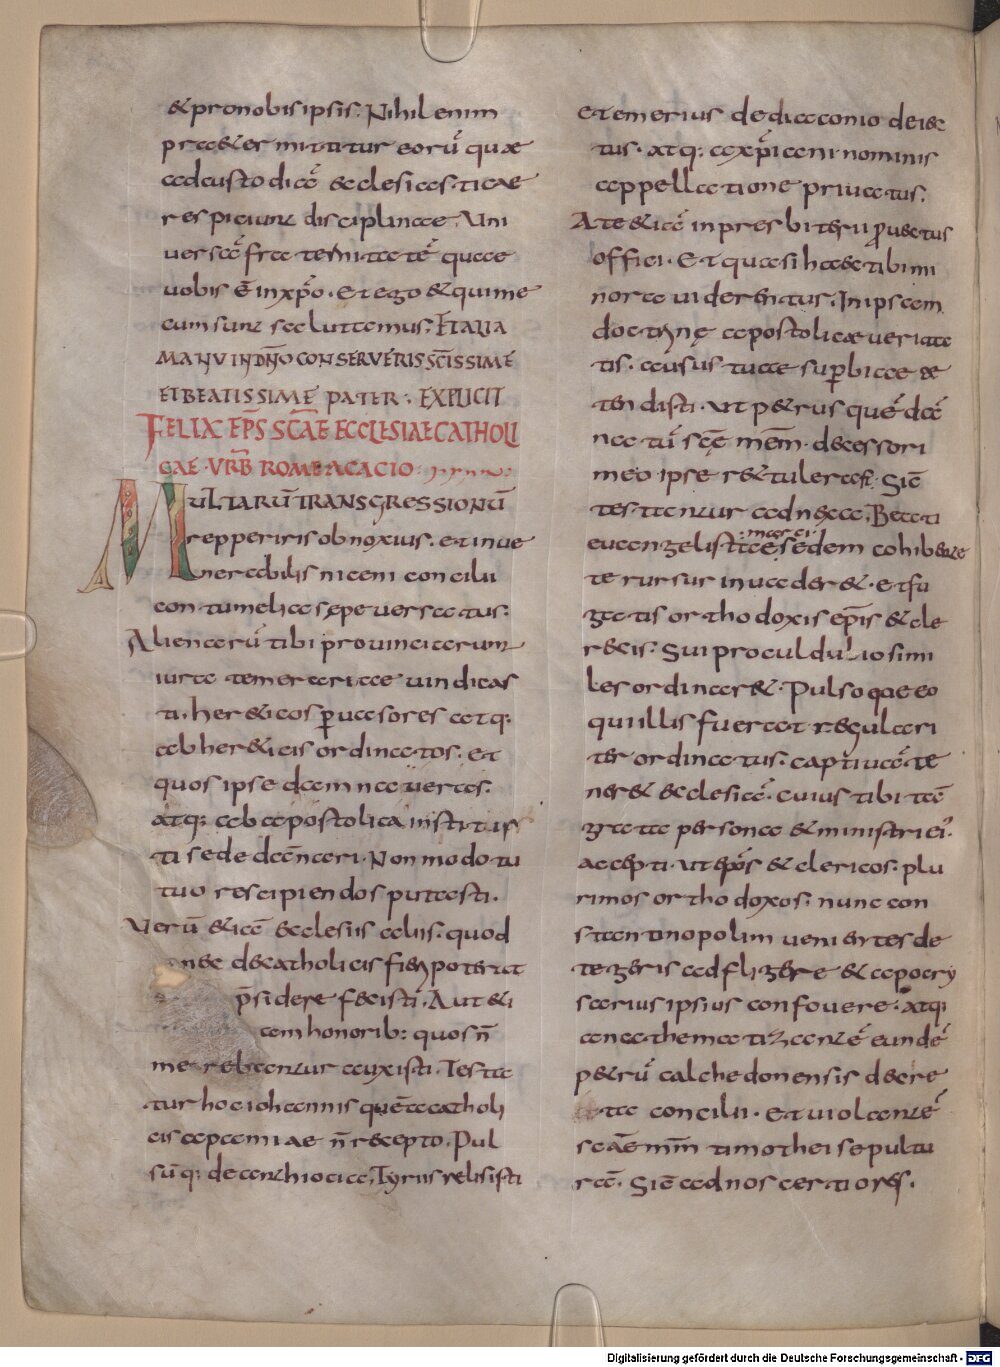 & pro nobis ipsis. Nihil enim
pr&ermittitur eorū quae
ad custodiā ecclesiasticae
respiciunt disciplinae. Uni
versā fraternitatē quae
vobis ē in xp̄o. Et ego & qui me
cum sunt salutamus. ET ALIA
MANU IN DÑO CONSERVERIS SC̄ISSIME
ET BEATISSIME PATER. EXPLICIT
FELIX EP̄S SC̄AE ECCLESIAE CATHOLI
CAE URB̄ ROME ACACIO
MULTARŪ TRANSGRESSIONŪ
repperiris obnoxius. et in ve
nerabilis niceni concilii
contumelia sepe versatus.
Alienarū tibi provinciarum
iura temerariae vindicas
ti. her&icos pervasores atq:
ab her&icis ordinatos. et
quos ipse damnaveras.
atq: ab apostolica instituis
ti sede dānari. Non modo tu
tuo rescipiendos putasti.
Verū &iā ecclesiis aliis. quod
nec de catholicis fieri poterat
p̄sidere fecisti. Aut &i
am honorib: quos ñ
merebantur auxisti. Testa
tur hoc iohannis quē a catholi
cis apamiae ñ recepto. Pul
sūq: de anthiocia, Tyriis relisisti
et emerius de diaconio deiec
tus. atq: a xp̄iani nominis
appellatione privatus.
A te &iā in presbiterii provectus
officii. Et quasi haec tibi mi
nora viderentur. In ipsam
doctrinę apostolicae verita
tis. ausus tuae superbiae ex
tendisti. Ut p&rus quē dā
na tū scē mēm. decessori
meo ipse r&tulerasi. Sic
testantur adnexa. Beati
evangelistae marci sedem cohibente
te rursur invader&. et fu
gatis orthodoxis ep̄is & cle
recis. Sui procul dulio simi
les ordinar&. Pulsoque eo
qui illis fuerat regulari
ter ordinatus. captivā te
ner& ecclesiā. cuius tibi tā
grata persona & ministri ei'
accepti. ut ep̄os & clericos. plu
rimos orthodoxos. nunc con
stantinopolim venientes de
tegeris adfligere & apocry
sarius ipsius confovere. atq:
anathematizantē eundē
p&rū calchedonensis decre
ta concilii. Et violantē
scāe mm̄ timothei sepultu
rā. Sic ad nos certiores.
Digitalisierung gefördert durch die Deutsche Forschungsgemeinschaft - DFG